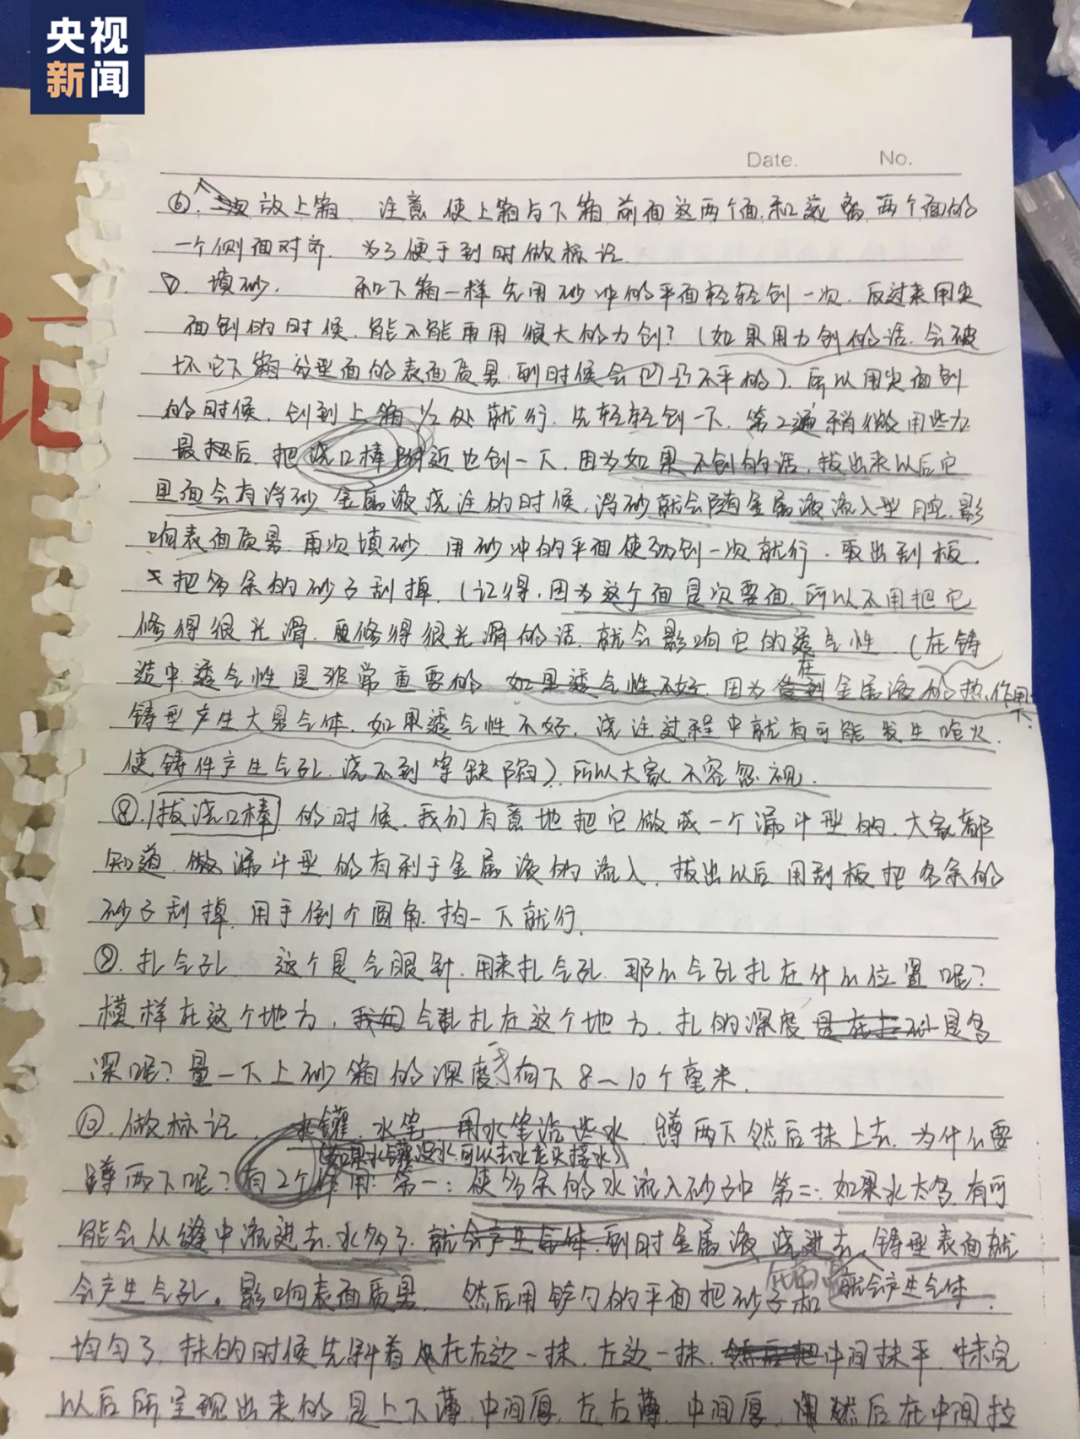 央视
新闻
Date. No.
⑥. 放上箱. 注意 使上箱与下箱 前面这两个面,和 两个面的
一个侧面对齐. 为了便于到时做标记.
⑦. 填砂. 和下箱一样先用砂冲的平面轻轻刽一次. 反过来用尖
面刽的时候. 能不能再用 很大的力刽?(如果用力刽的话.会破
坏它下箱分型面的表面质量.到时候会凹凸不平的).所以用尖面刽
的时候.刽到上箱½处就行.先轻轻刽一下.第2遍稍微用些力
最后.把浇口棒附近也刽一下.因为如果不刽的话,拔出来以后它
里面会有浮砂 金属液浇注的时候,浮砂就会随金属液流入型腔.影
响表面质量.再次填砂 用砂冲的平面使劲刽一次就行.取出刮板.
把多余的砂子刮掉.(记得.因为这个面是次要面.所以不用把它
修得很光滑.修得很光滑的话.就会影响它的透气性.(在铸
造中透气性是非常重要的 如果透气性不好.因为在金属液的热作用下
铸型产生大量气体.如果透气性不好.浇注过程中就有可能发生呛火.
使铸件产生气孔.浇不到等缺陷).所以大家不容忽视.
⑧.拔浇口棒 的时候.我们有意地把它做成一个漏斗型的.大家都
知道.做漏斗型的有利于金属液的流入.拔出以后用刮板把多余的
砂子刮掉.用手倒个圆角.拍一下就行.
⑨.扎气孔 这个是气眼针.用来扎气孔.那么气孔扎在什么位置呢?
模样在这个地方.气孔扎在这个地方.扎的深度 是多
深呢?量一下上砂箱的深度 向下8~10个毫米.
⑩.做标记 水罐.水笔 用水笔沾些水 蹲两下然后抹上去.为什么要
(如果水罐没水可以去水龙头接水)
蹲两下呢?有2个作用:第一:使多余的水流入砂子中 第二:如果水太多.有可
能会从缝中流进去.水多了.就会产生气体.到时金属液浇进去.铸型表面就
会产生气孔。影响表面质量. 然后用铲勺的平面把砂子和 就会产生气体.
均匀了.抹的时候先斜着 在右边一抹.左边一抹.中间抹平.抹完
以后所呈现出来的是上下薄.中间厚.左右薄.中间厚. 然后在中间拉